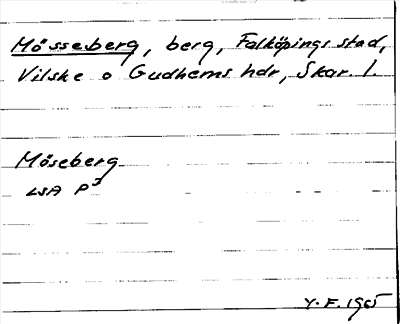 Mösseberg, berg, Falköpings stad,
Vilske o Gudhems hdr, Skar. l.
Möseberg
LSA P5
Y.F. 1965